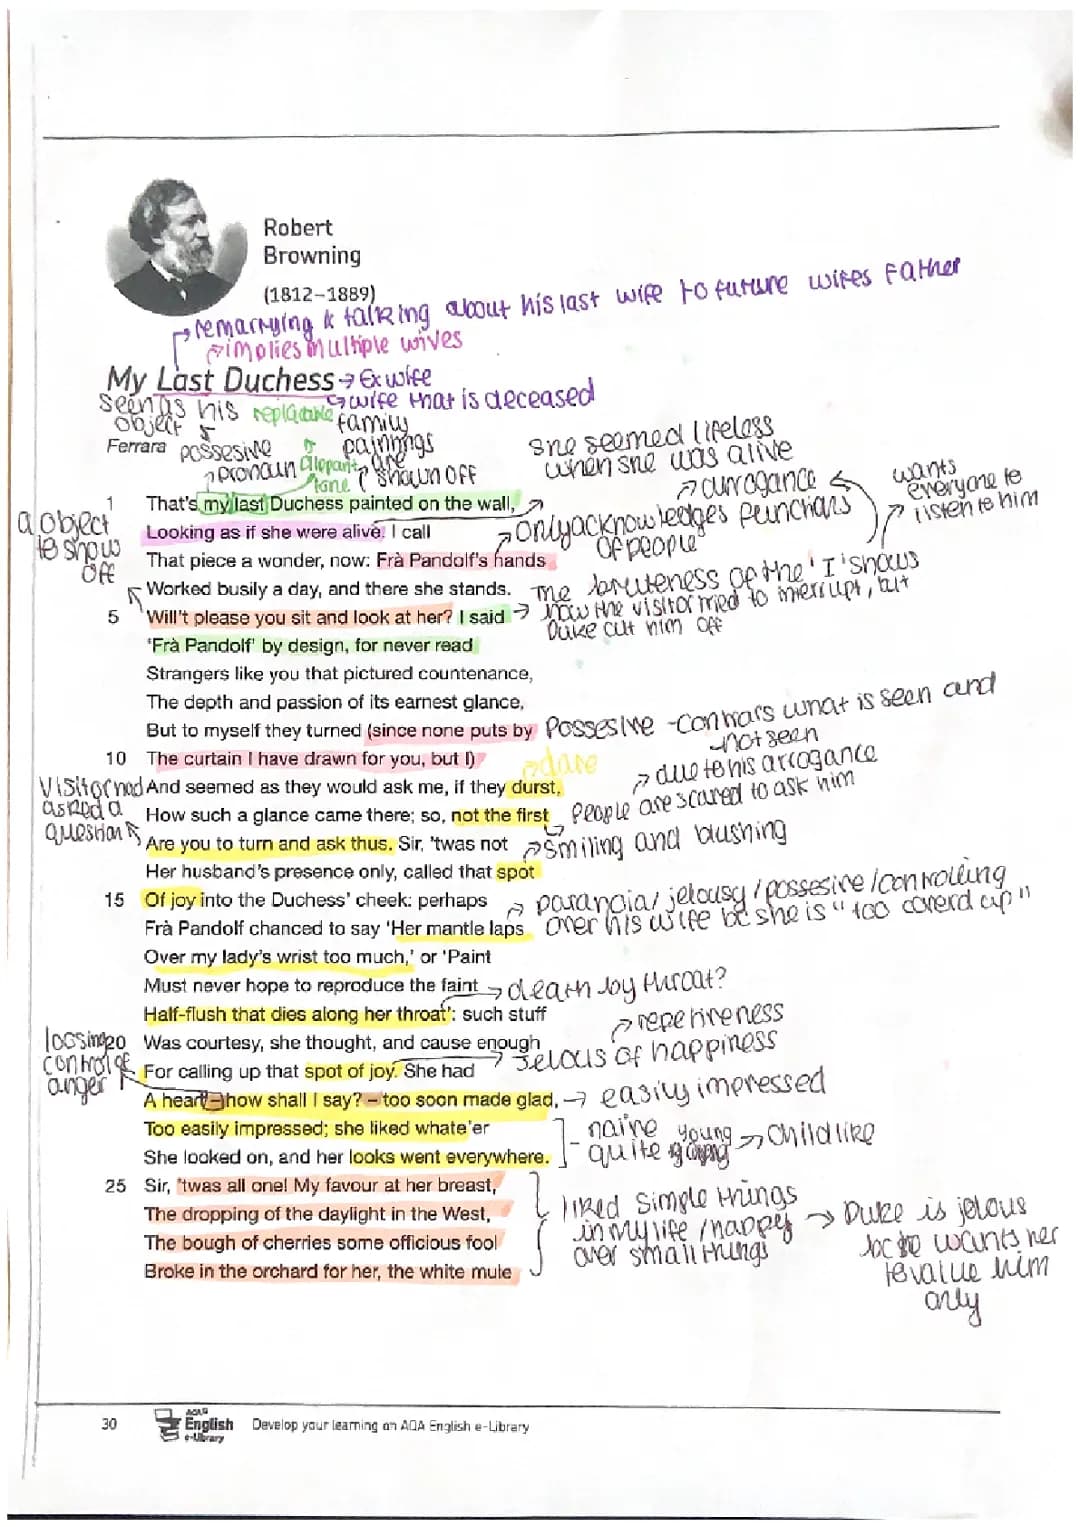 Robert
Browning
(1812–1889)
remarrying & talking about his last wife to future wifes Father
implies multiple wives
My Last Duchess → Ex wife
wife that is deceased
seen as his
object
replacable
family
paintings
are
shown off
Ferrara
possesive
pronoun
tone
she seemed lifeless
when she was alive
arrogance
wants
everyone to
listen to him
1 That's my last Duchess painted on the wall,
a object
to show
off
Looking as if she were alive. I call
only acknowledges
of people
That piece a wonder, now: Frà Pandolf's hands
Worked busily a day, and there she stands.
The of the 'I' shows
how the visitor tried to interrupt, but
Duke cut him off
5 Will't please you sit and look at her? I said
'Frà Pandolf' by design, for never read
Strangers like you that pictured countenance,
The depth and passion of its earnest glance,
But to myself they turned (since none puts by
Possesive - what is seen and
not seen
10 The curtain I have drawn for you, but I)
dare
due to his arrogance
People are scared to ask him
Visitor had
asked a
question
And seemed as they would ask me, if they durst,
How such a glance came there; so, not the first
Are you to turn and ask thus. Sir, 'twas not
smiling and blushing
Her husband's presence only, called that spot
15 Of joy into the Duchess' cheek: perhaps
paranoia/jelousy/possesive/controlling
over his wife bc she is "too coverd up"
Frà Pandolf chanced to say 'Her mantle laps
Over my lady's wrist too much,' or 'Paint
Must never hope to reproduce the faint
death by throat?
Half-flush that dies along her throat': such stuff
repetiveness
20 Was courtesy, she thought, and cause enough
jelous of happiness
loosing
control of
anger
For calling up that spot of joy. She had
A heart – how shall I say? – too soon made glad,
→ easily impressed
Too easily impressed; she liked whate'er
naive
quite young
→ childlike
She looked on, and her looks went everywhere.
25 Sir, 'twas all one! My favour at her breast,
The dropping of the daylight in the West,
The bough of cherries some officious fool
Broke in the orchard for her, the white mule
liked simple things
in my life /happy
over small things
→ Duke is jelous
bc he wants her
to value him
only
30
AQA
English
e-Library
Develop your learning on AQA English e-Library